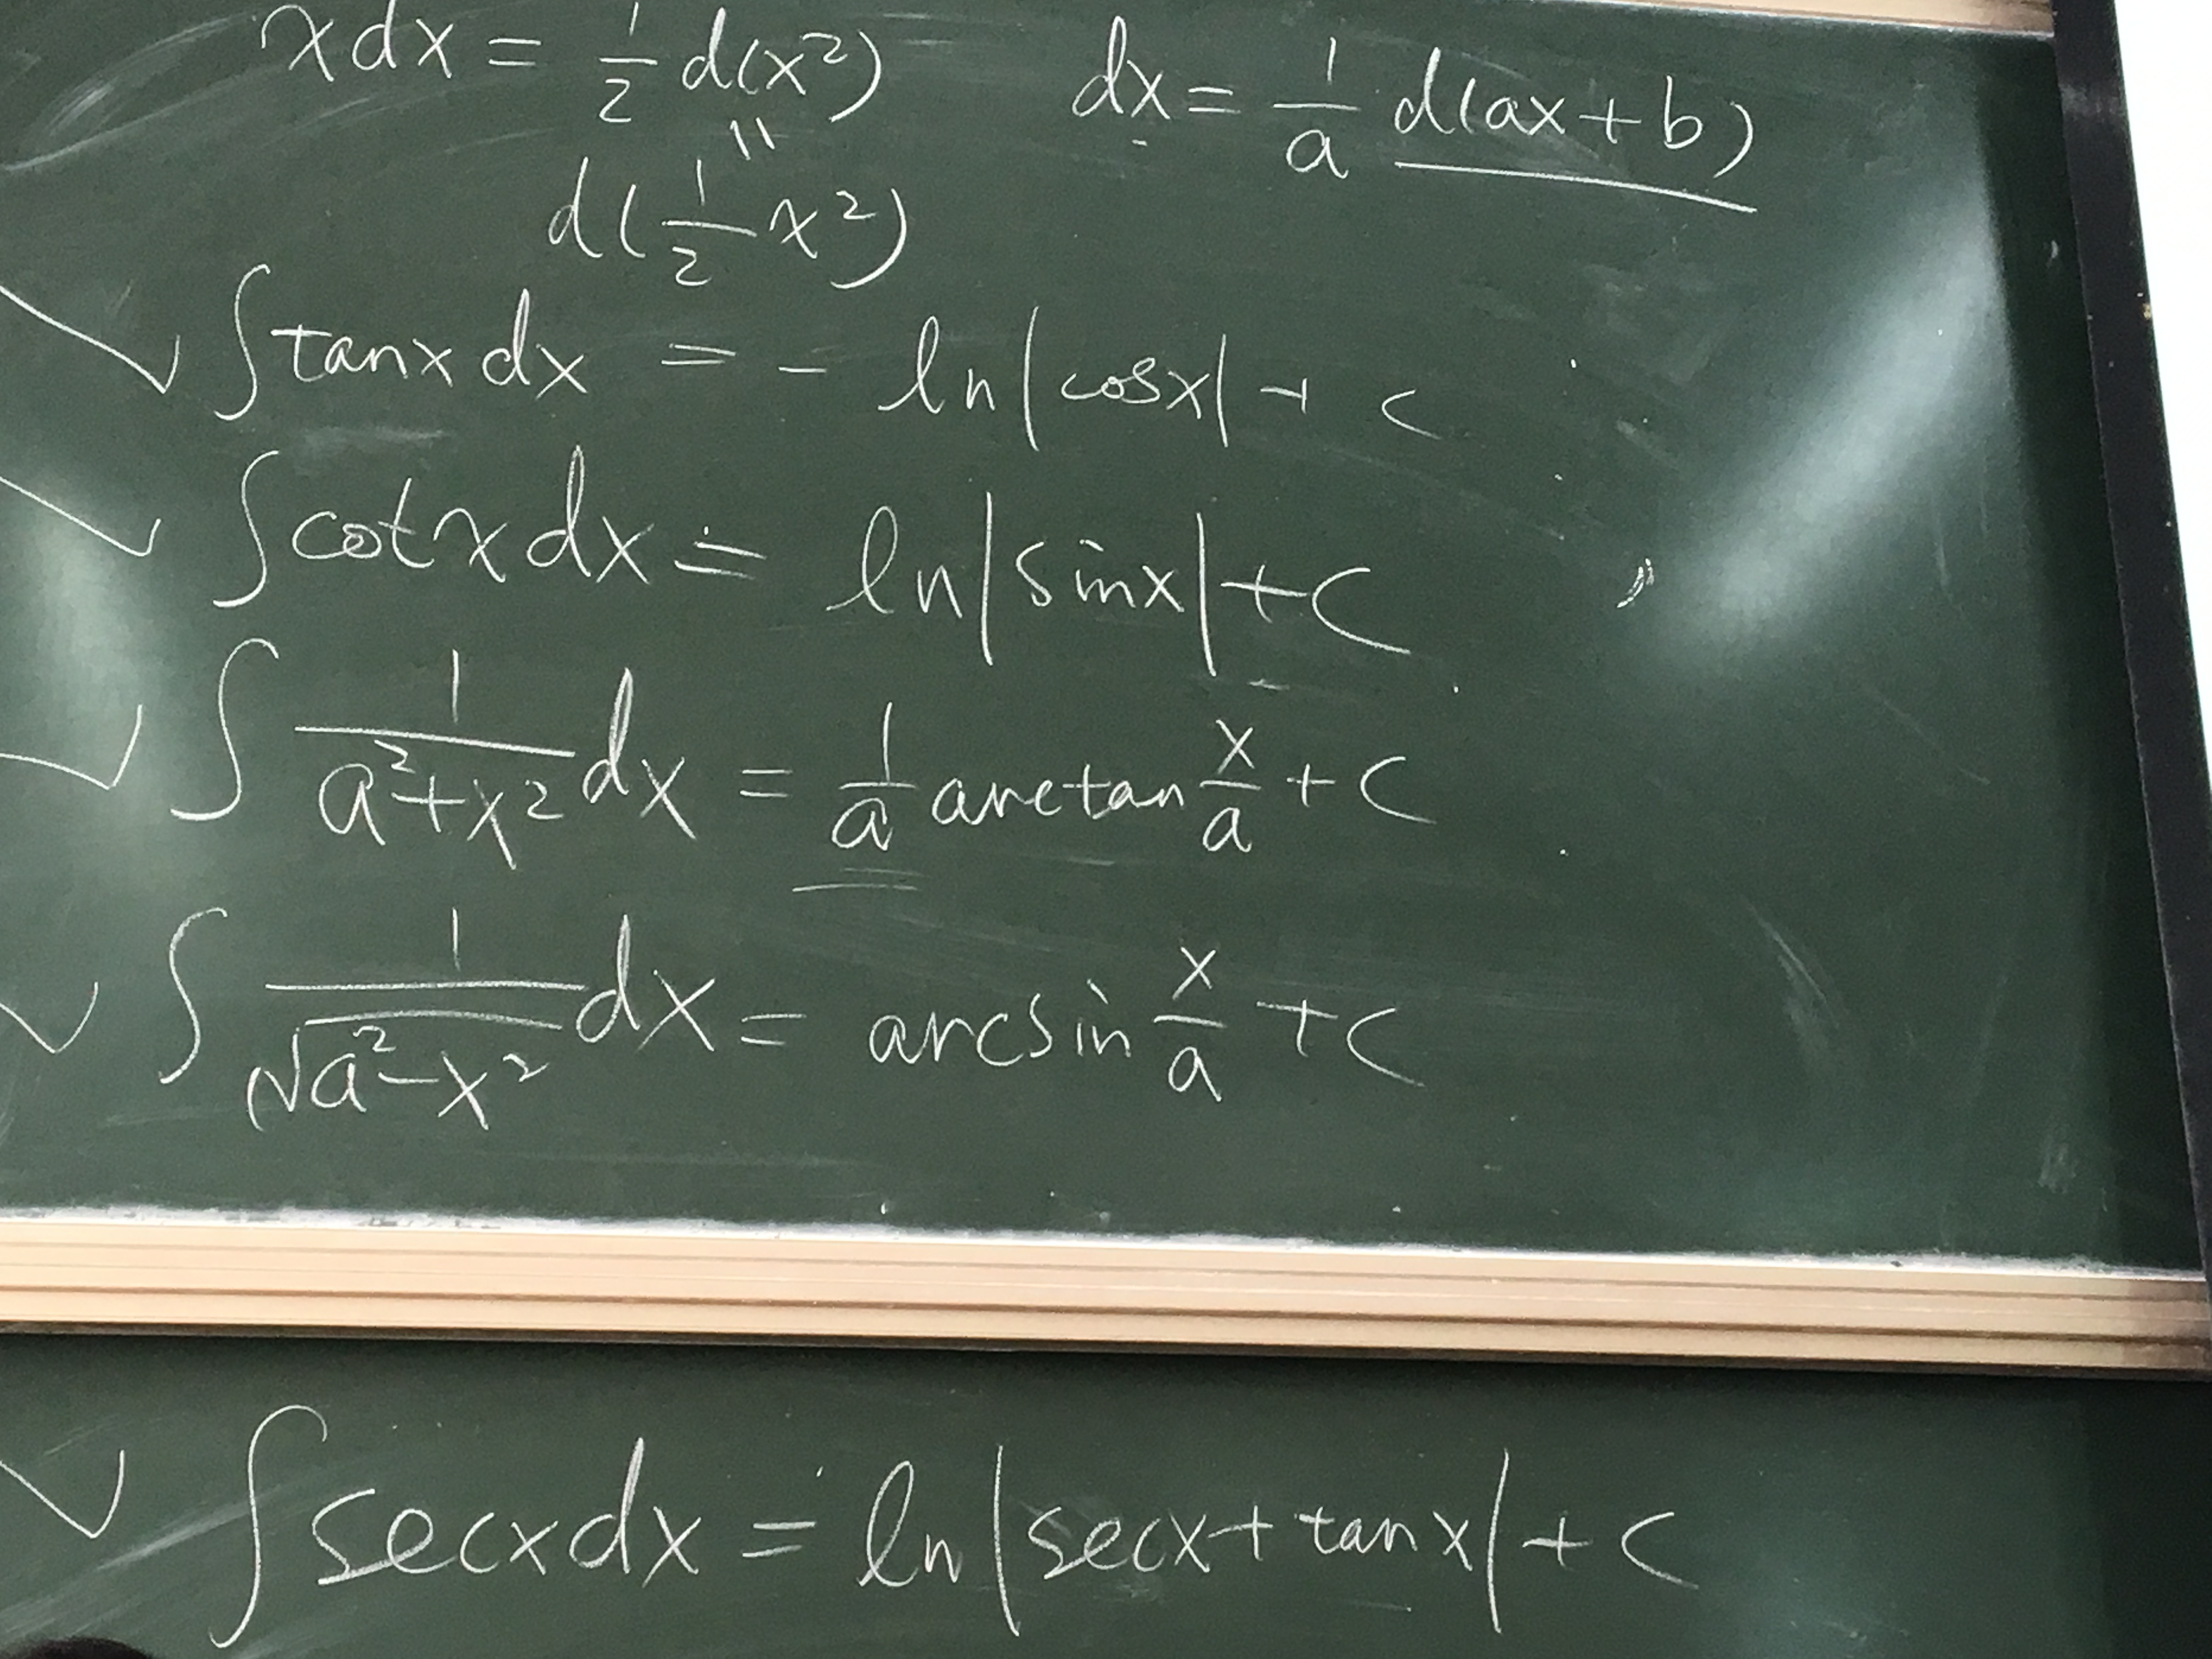 xdx = 1/2 d(x²)    dx = 1/a d(ax+b)
=
d(1/2 x²)
√ ∫tanxdx = - ln|cosx| + C
√ ∫cotxdx = ln|sinx| + C
√ ∫ 1/(a²+x²) dx = 1/a arctan x/a + C
√ ∫ 1/√(a²-x²) dx = arcsin x/a + C
√ ∫secxdx = ln|secx+tanx| + C